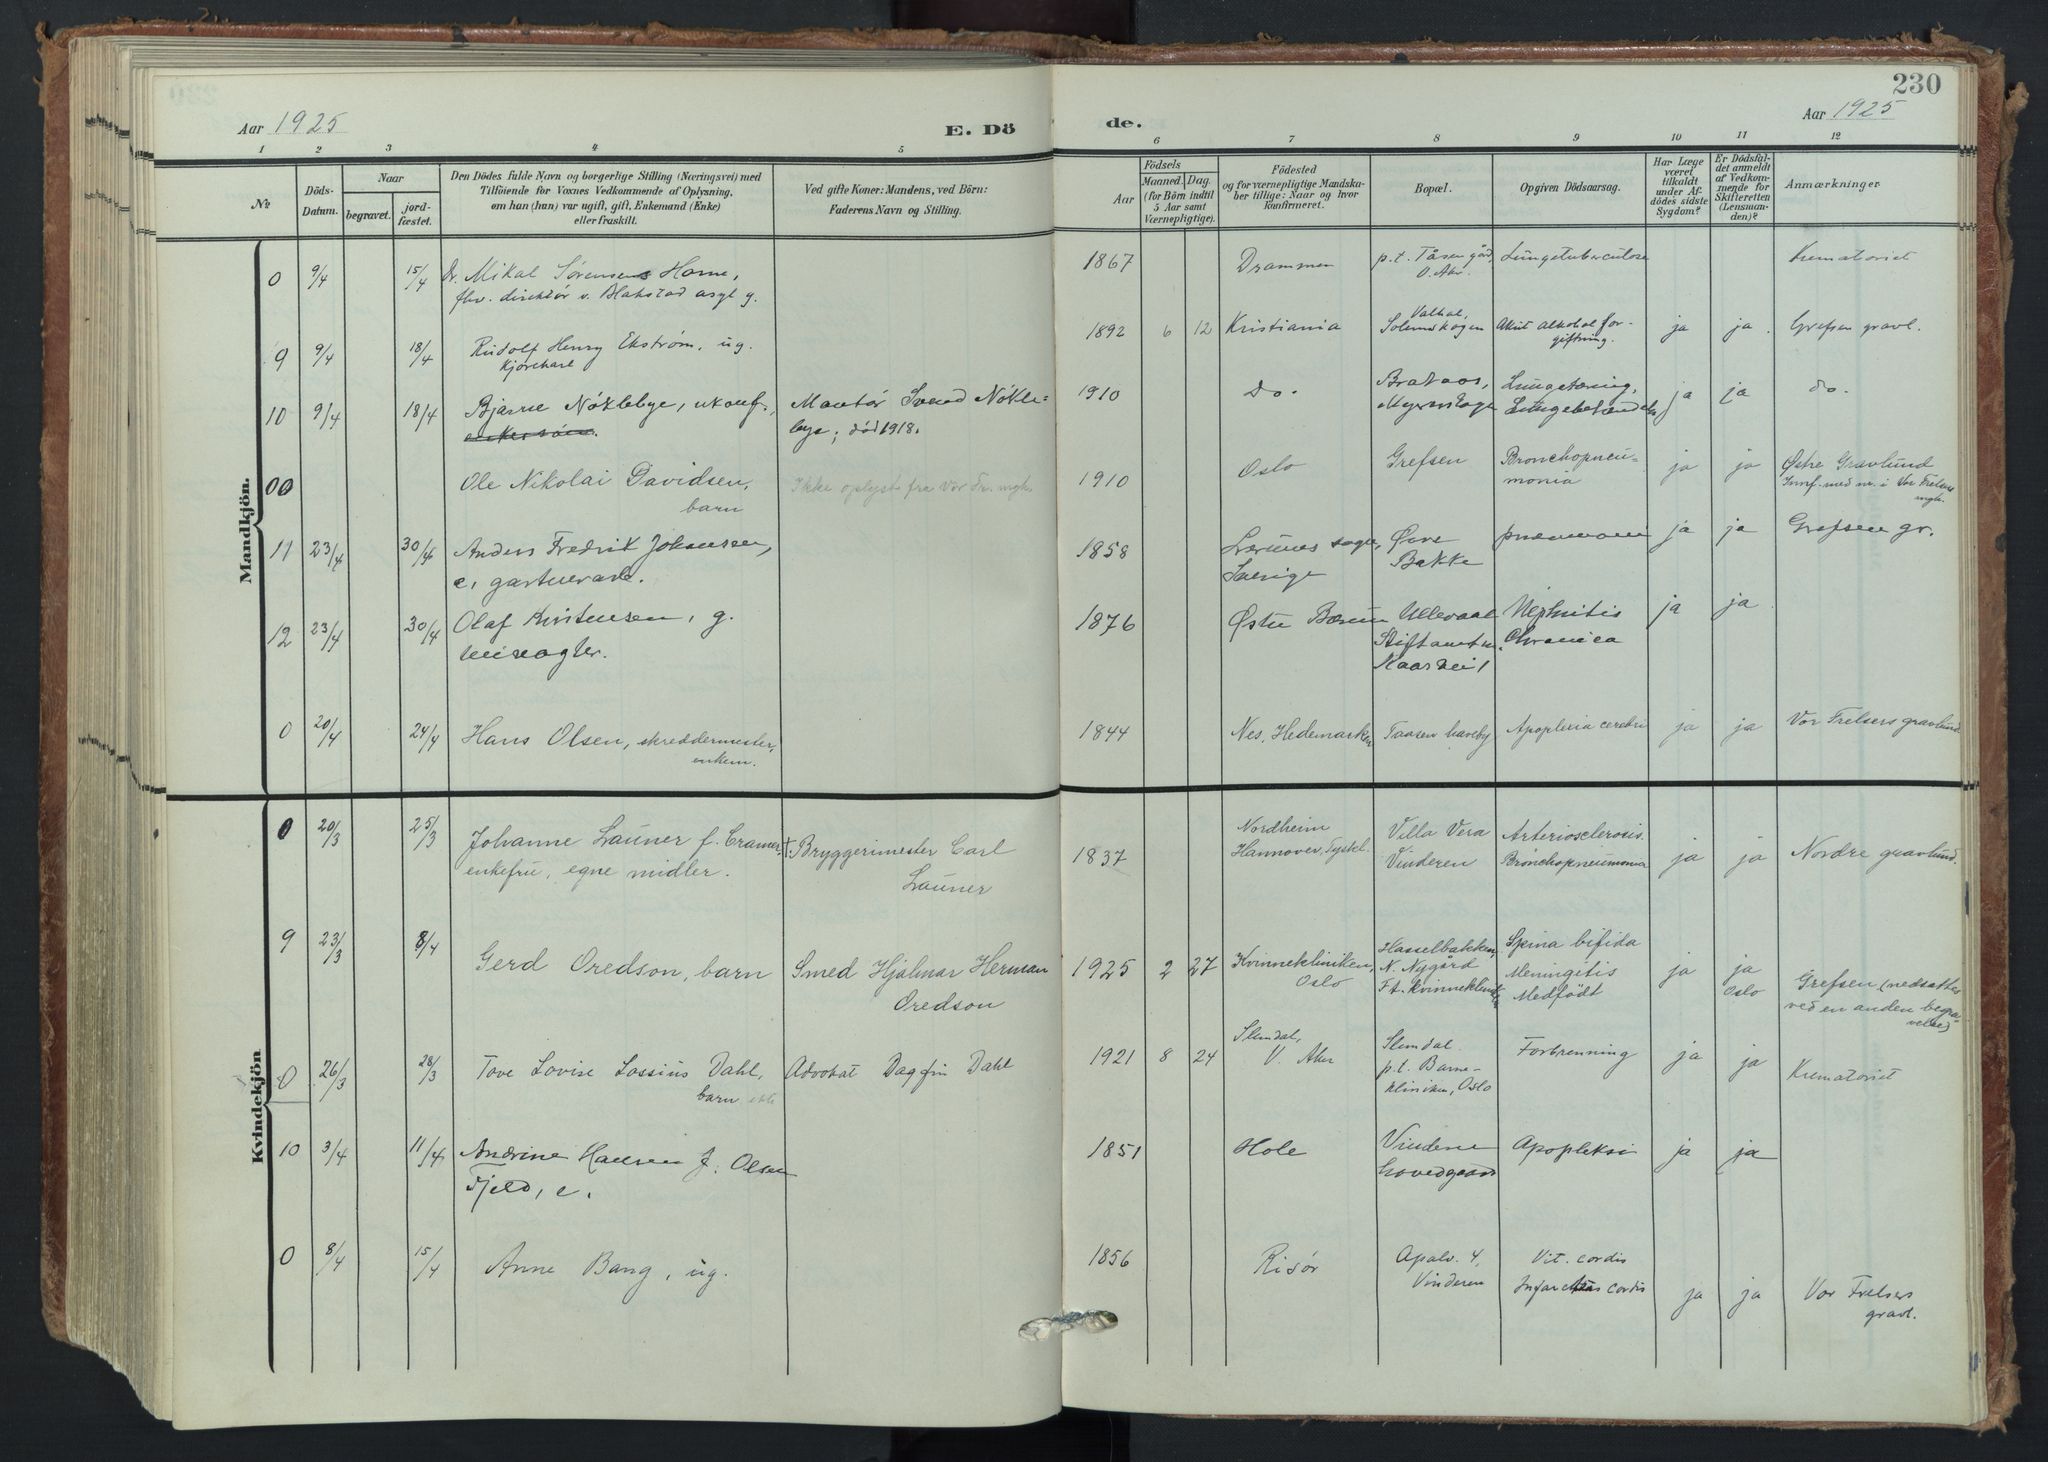 230
Aar 1925
E. Dö
de.
Aar 1925
1 2 3 4 5 6 7 8 9 10 11 12
№
Döds-
Datum.
Naar
begravet.
jord-
fæstet.
Den Dödes fulde Navn og borgerlige Stilling (Næringsvei) med
Tilföiende for Voxnes Vedkommende af Oplysning,
om han (hun) var ugift, gift, Enkemand (Enke)
eller fraskilt.
Ved gifte Koner: Mandens, ved Börn:
Faderens Navn og Stilling.
Födsels
Aar
Maaned. Dag.
(for Börn indtil
5 Aar samt
Værnepligtige).
Födested
og for værnepligtige Mandska-
ber tillige: Naar og hvor
konfirmeret.
Bopæl.
Opgiven Dödsaarsag.
Har Læge
været
tilkaldt
under Af-
dödes sidste
Sygdom?
Er Dödsfal-
det anmeldt
af Vedkom-
mende for
Skifteretten
(Lensman-
den)?
Anmærkninger
Mandkjön.
0 9/4 15/4 Dr. Mikal Sørensens Home,
fhv. direktør v. Blakstad asyl g.
1867 Drammen p.t. Tåsen gård, Lungetuberculose Krematoriet
Ø. Aker
9 9/4 18/4 Rudolf Henry Ekstrøm, ug.
Kjørekarl
1892 6 12 Kristiania Valhal,
Solemskogen Akut alkohol for-
giftning. ja ja. Grefsen gravl.
10 9/4 18/4 Bjarne Nöklebye, ukonf.,
Mantör Svend Nökle-
bye; död 1918.
1910 Do. Brataas,
Myrerskogen Lungetæring,
ja ja do.
00 Ole Nikolai Davidsen,
barn
Ikke oplyst fra Vor Fr. mgh.
1910 Oslo Grefsen Bronchopneu-
monia ja ja Østre Gravlund
Innf. med nr. i Vor Frelsers
mgh.
11 23/4 30/4 Anders Fredrik Johansen,
e, gartnerarb.
1858 sogn,
Sverige Øvre
Bakke pneumoni ja ja Grefsen gr.
12 23/4 30/4 Olaf Kristensen, g.
1876 Østre Bærum Ullevaal
Nephritis
Chronica ja ja
0 20/4 24/4 Hans Olsen, skreddermester,
enkem.
1844 Nes, Hedemarken Taasen haveby Apoplexia cerebri ja ja Vor Frelsers gravlund
Kvindekjön
0 20/3 25/3 Johanne Launer f. Cramer.
enkefru, egne midler.
†. Bryggerimester Carl
Launer
1837 Nordheim
Hannover, Tyskl. Villa Vera
Vinderen Arteriosclerosis.
Bronchopneumonia ja ja Nordre gravlund.
9 23/3 8/4 Gerd Oredson, barn
Smed Hjalmar Herman
Oredson
1925 2 27 Kvinnekliniken,
Oslo Hasselbakken,
N. Nygård
Spina bifida
Meningitis
Medfödt ja ja
Oslo Grefsen (nedsattes
ved en anden begra-
velse)
0 26/3 28/3 Tove Lovise Lossius Dahl,
barn ekte
Advokat Dagfin Dahl
1921 8 24 Slemdal,
V. Aker Slemdal
p.t. Barne-
kliniken, Oslo Forbrenning ja ja Krematoriet
10 3/4 11/4 Andrine Hansen f. Olsen
Fjeld, e.
1851 Hole Vinderen
hovedgaard Apopleksi ja ja
0 8/4 15/4 Anne Bang, ug.
1856 Risör Apalv. 4,
Vinderen Vit. cordis
Infarctus cordis ja ja Vor Frelsers
gravl.